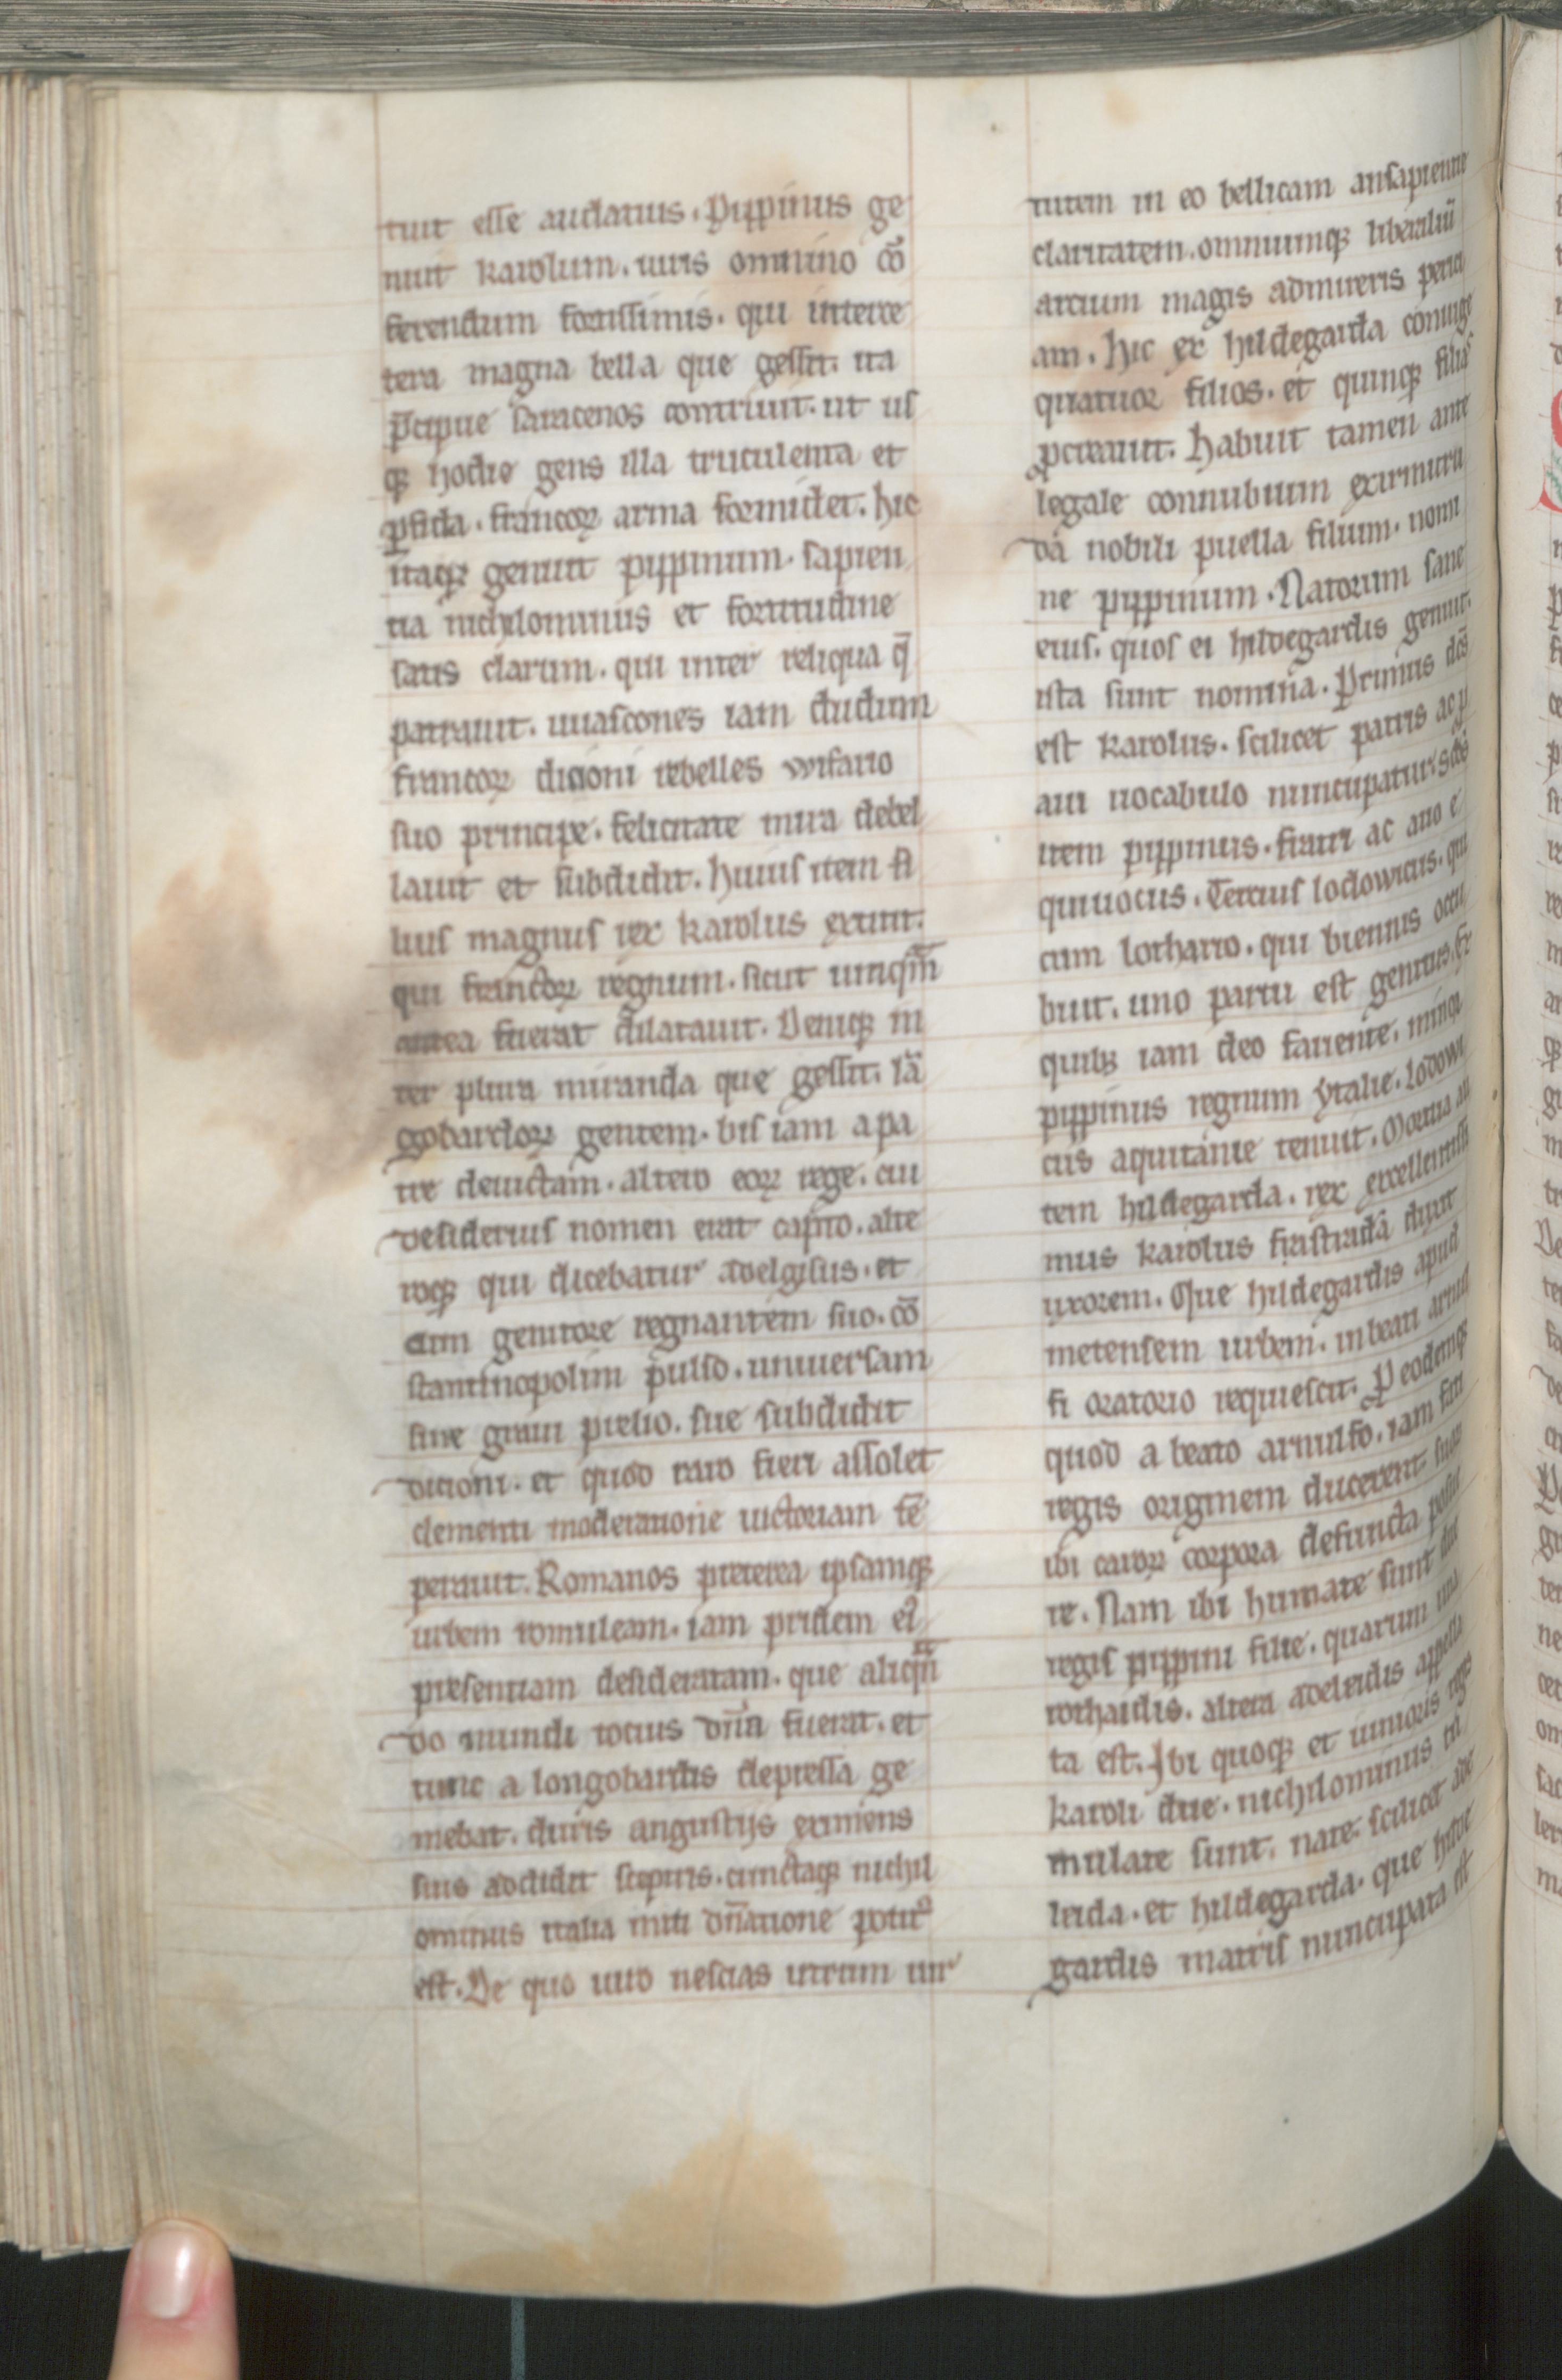 tuit esse audacius. Pippinus ge
nuit karolum. uiris omnino cō
ferendum fortissimis. qui inter ce
tera magna bella que gessit. ita
p̄cipue saracenos contriuit. ut us
qꝫ hodie gens illa truculenta et
ꝑfida. francoꝝ arma formidet. hic
itaqꝫ genuit pippinum. sapien
tia nichilominus et fortitudine
satis clarum. qui inter reliqua q̄
patrauit. uuascones iam dudum
francoꝝ dicioni rebelles wifario
suo principe. felicitate mira debel
lauit et subdidit. huius item fi
lius magnus rex karolus extitit.
qui francoꝝ regnum. sicut unqm̄
antea fuerat dilatauit. Deniqꝫ in
ter plura miranda que gessit. lā
gobardoꝝ gentem. bis iam a pa
tre deuictam. altero eoꝝ rege. cui
desiderius nomen erat capto. alte
roqꝫ qui dicebatur adelgisus. et
cum genitore regnantem suo. cō
stantinopolim pulso. uniuersam
sine graui prelio. sue subdidit
dicioni. et quod raro fieri assolet
clementi moderatione uictoriam tē
perauit. Romanos preterea ipsamqꝫ
urbem romuleam. iam pridem eiꝯ
presentiam desideratam. que aliqn̄
do mundi tocius dn̄a fuerat. et
tunc a longobardis depressa ge
mebat. duris angustijs eximens
suis addidit sceptris. cunctaqꝫ nichil
ominus italia miti dn̄atione potitꝯ
est. De quo uiro nescias utrum uir
tutem in eo bellicam an sapientie
claritatem. omniumqꝫ liberaliū
artium magis admireris periti
am. hic ex hildegarda coniuge
quatuor filios. et quinqꝫ filias
ꝓcreauit. Habuit tamen ante
legale connubium ex himitru
da nobili puella filium. nomi
ne pippinum. Natorum sane
eius. quos ei hildegardis genuit.
ista sunt nomina. Primus dc̄s
est karolus. scilicet patris ac p
aui uocabulo nuncupatus. scd̄s
item pippinus. fratri ac auo e
quiuocus. Tercius lodowicus. qui
cum lothario. qui biennis occu
buit. uno partu est genitus. Ex
quibꝫ iam deo fauente. minor
pippinus regnum ytalie. lodowi
cus aquitanie tenuit. Mortua au
tem hildegarda. rex excellentissi
mus karolus frastradā duxit
uxorem. Que hildegardis apud
metensem urbem. in beati arnul
fi oratorio requiescit. Pro eo denqꝫ
quod a beato arnulfo. iam fati
regis originem ducerent. suoꝝ
ibi caroꝝ corpora defuncta posu
re. Nam ibi humate sunt due
regis pippini filie. quarum una
rothaidis. altera adeleidis appella
ta est. Ibi quoqꝫ et iunioris regis
karoli due. nichilominus tu
mulate sunt. nate. scilicet ade
leida. et hildegarda. que hilde
gardis matris nuncupata est